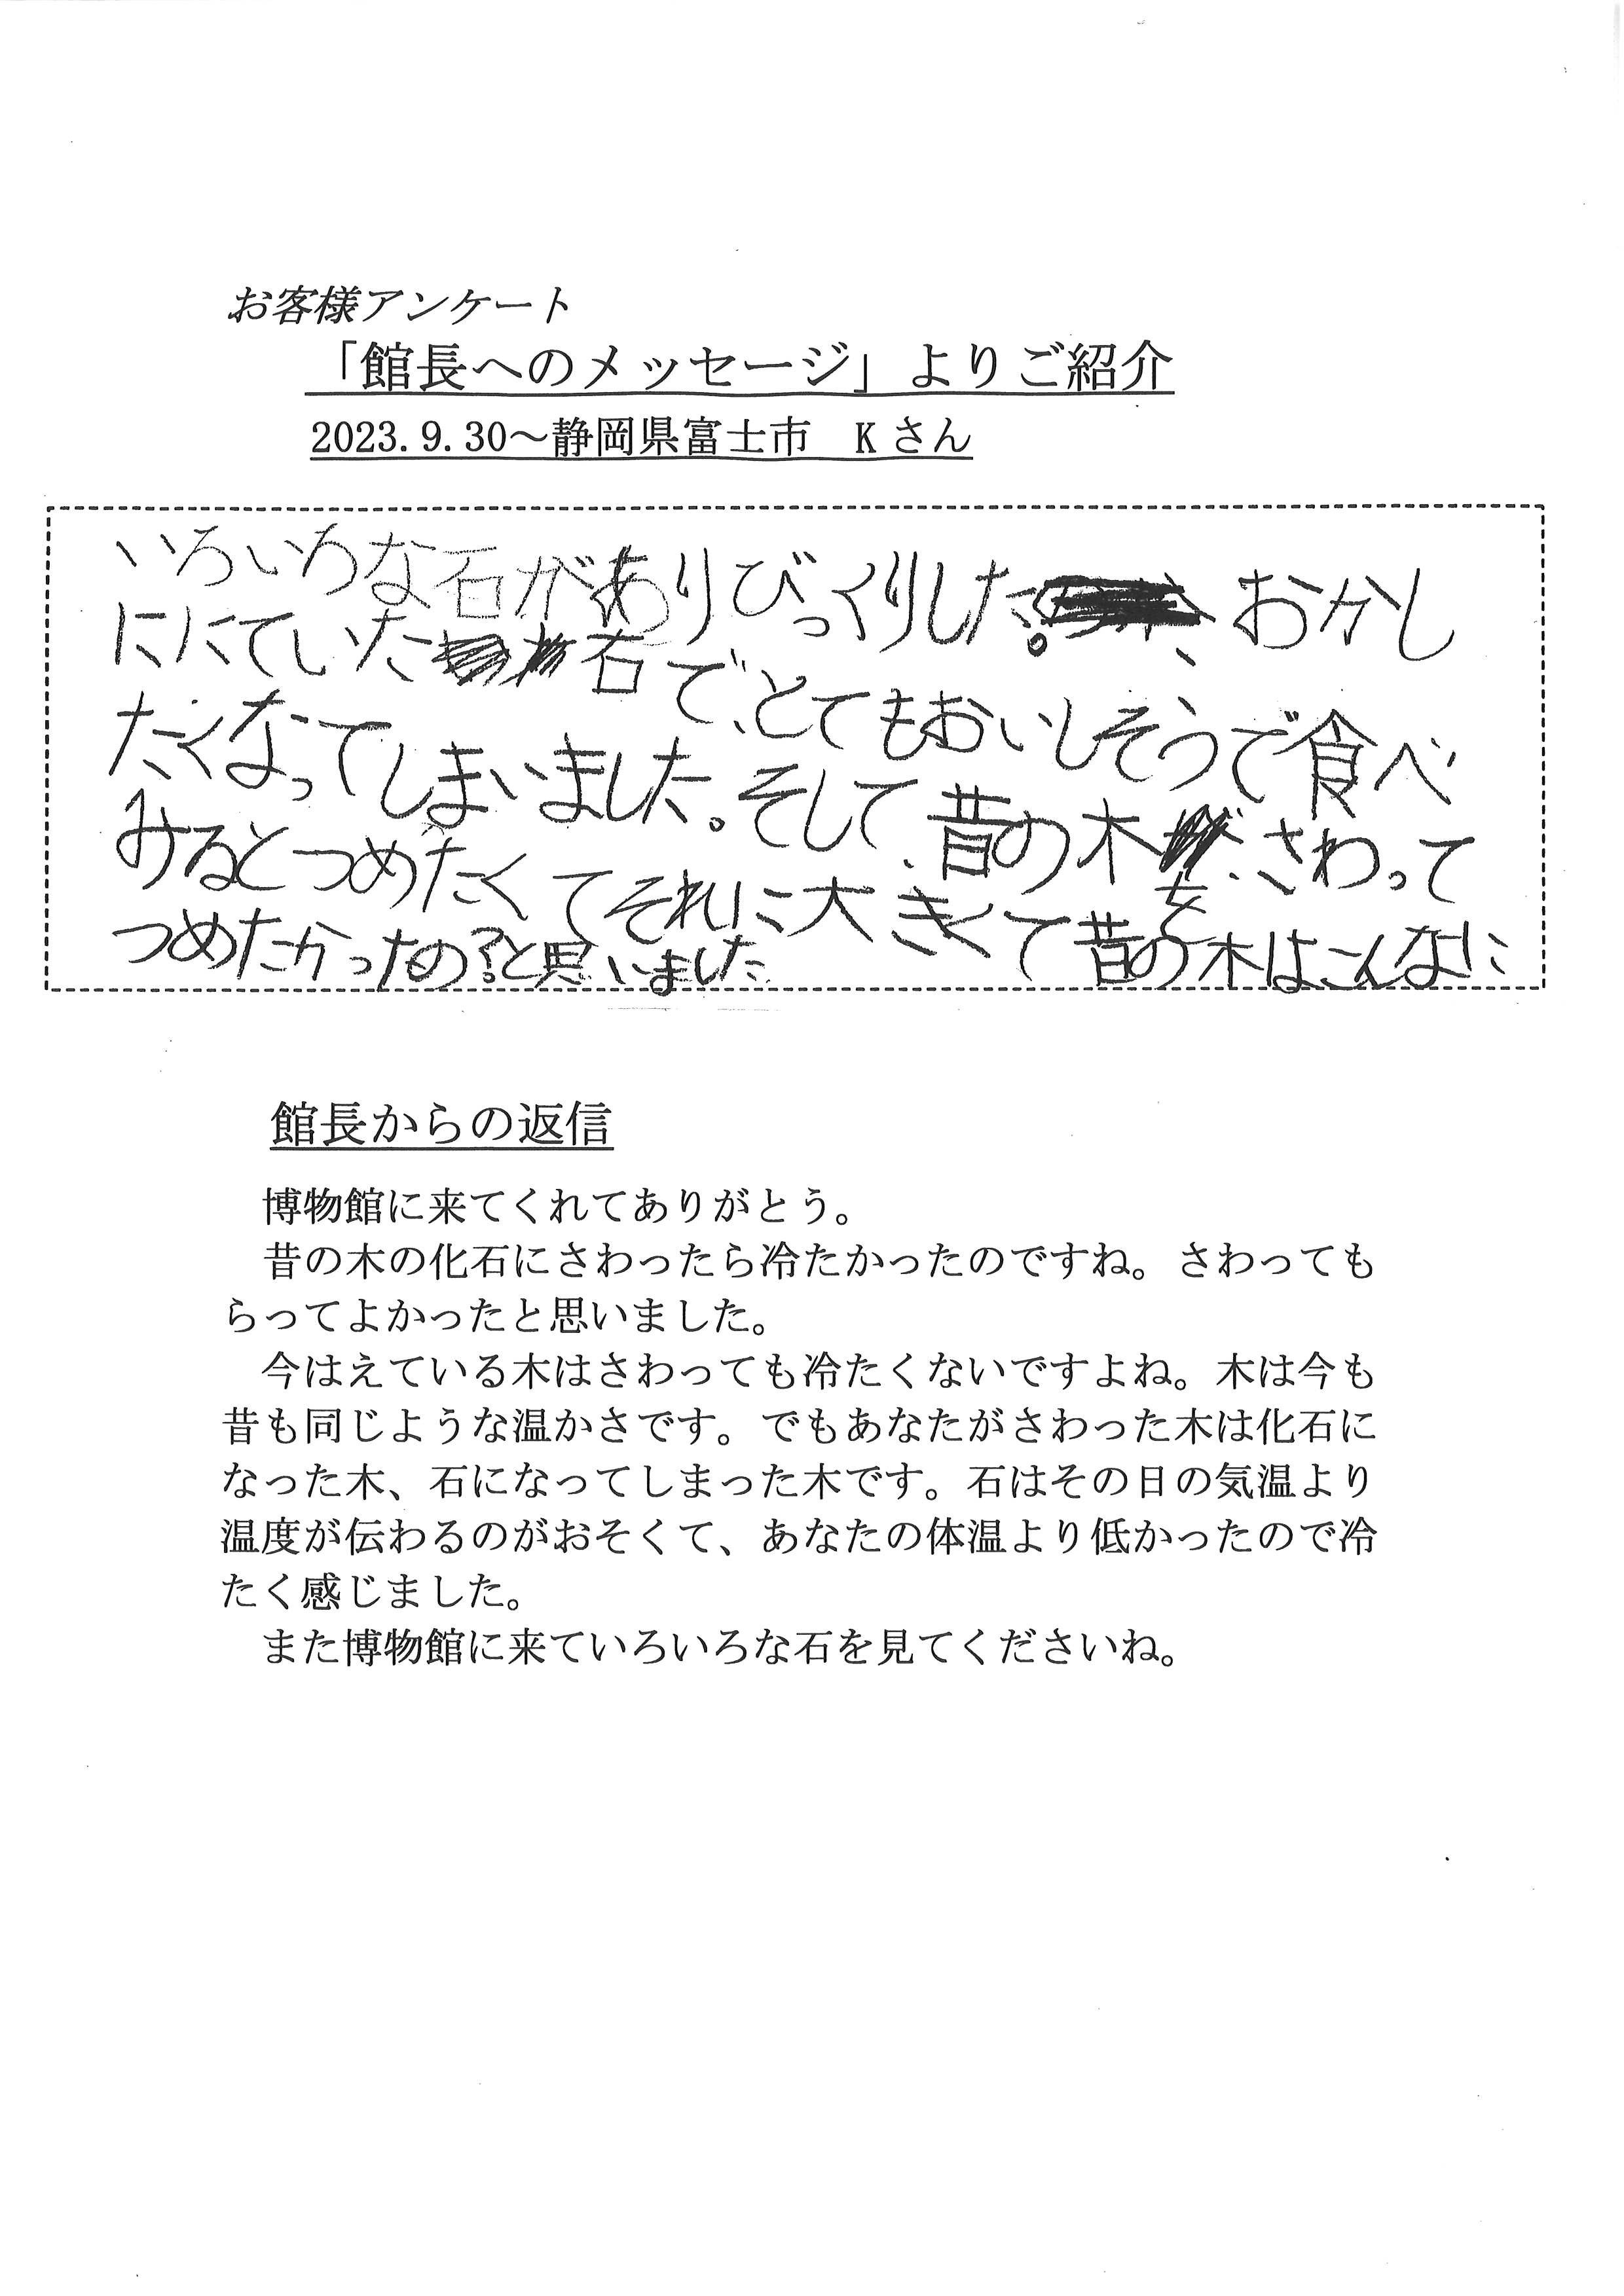 お客様アンケート
「館長へのメッセージ」よりご紹介
2023.9.30～静岡県富士市　Kさん
いろいろな石がありびっくりした。、おかし
ににていた石で、とてもおいしそうで食べ
たくなってしまいました。そして、昔の木をさわって
みるとつめたくてそれに大きくて昔の木はこんなに
つめたかったの?と思いました
館長からの返信
博物館に来てくれてありがとう。
昔の木の化石にさわったら冷たかったのですね。さわっても
らってよかったと思いました。
今はえている木はさわっても冷たくないですよね。木は今も
昔も同じような温かさです。でもあなたがさわった木は化石に
なった木、石になってしまった木です。石はその日の気温より
温度が伝わるのがおそくて、あなたの体温より低かったので冷
たく感じました。
また博物館に来ていろいろな石を見てくださいね。